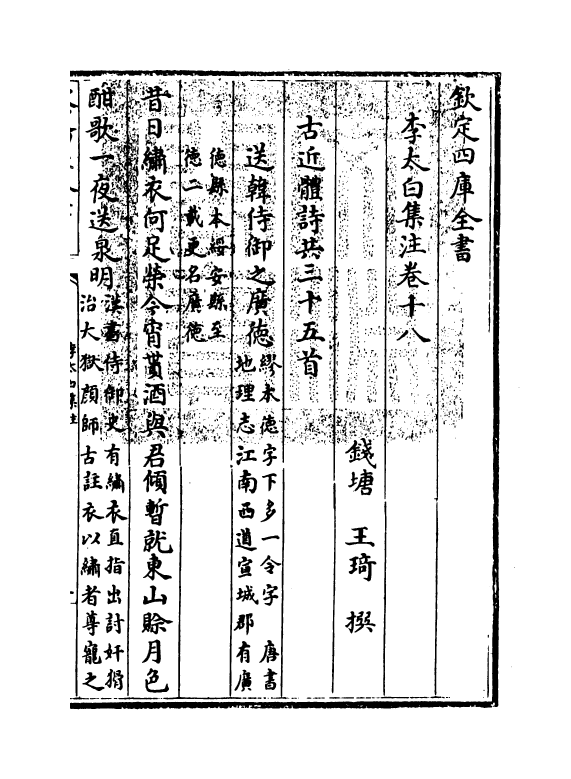 欽定四庫全書
李太白集注卷十八
錢塘 王琦 撰
古近體詩共三十五首
送韓侍御之廣德繆本德字下多一令字 唐書
地理志江南西道宣城郡有廣
德縣本綏安縣至
德二載更名廣德
昔日繡衣何足榮今宵貰酒與君傾暫就東山賖月色
酣歌一夜送泉明漢書侍御史有繡衣直指出討奸猾
治大獄顔師古註衣以繡者尊寵之